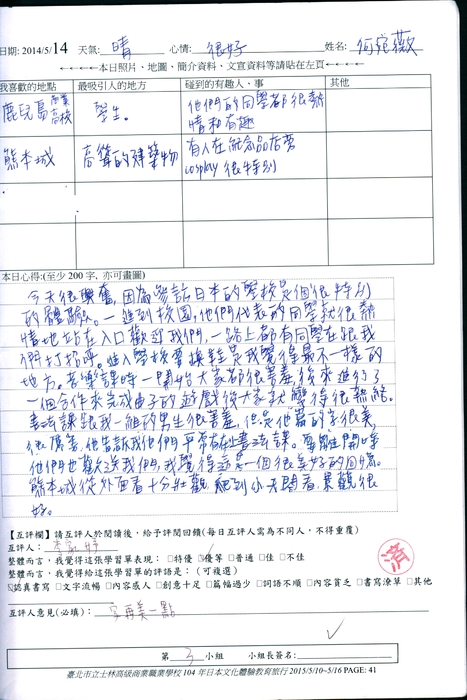 日期: 2014/5/14 天氣: 晴 心情: 很好 姓名: 何宛薇
←←←←本日照片、地圖、簡介資料、文宣資料等請貼在左頁←←←←
我喜歡的地點 最吸引人的地方 碰到的有趣人、事 其他
鹿兒島商業高校 學生。 他們的同學都很熱情和有趣
熊本城 高聳的建築物 有人在紀念品店旁cosplay很特別
本日心得:(至少 200 字, 亦可畫圖)
今天很興奮,因為參訪日本的學校是個很特別
的體驗。一進到校園,他們代表的同學就很熱
情地站在入口歡迎我們,一路上都有同學在跟我
們打招呼。進入學校要換鞋是我覺得最不一樣的
地方。音樂課時一開始大家都很害羞,後來進行了
一個合作來完成曲子的遊戲後大家就變得很熱絡。
書法課跟我一組的男生很害羞,但是他寫的字很美,
很厲害,他告訴我他們平常有在上書法課。要離開時
他們也歡送我們,我覺得這是一個很美好的回憶。
熊本城從外面看十分壯觀,
好。
【互評欄】請互評人於閱讀後,給予評閱回饋(每日互評人需為不同人,不得重覆)
互評人:
整體而言,我覺得這張學習單表現:□特優 □優等 □普通 □佳 □不佳
整體而言,我覺得這張學習單的評語是:(可複選)
□認真書寫 □文字流暢 □內容感人 □創意十足 □篇幅過少 □詞語不順 □內容貧乏 □書寫潦草 □其他
互評人意見(必填): 字再美一點
第 3 小組 小組長簽名:
臺北市立士林高級商業職業學校 104 年日本文化體驗教育旅行 2015/5/10~5/16 PAGE: 41